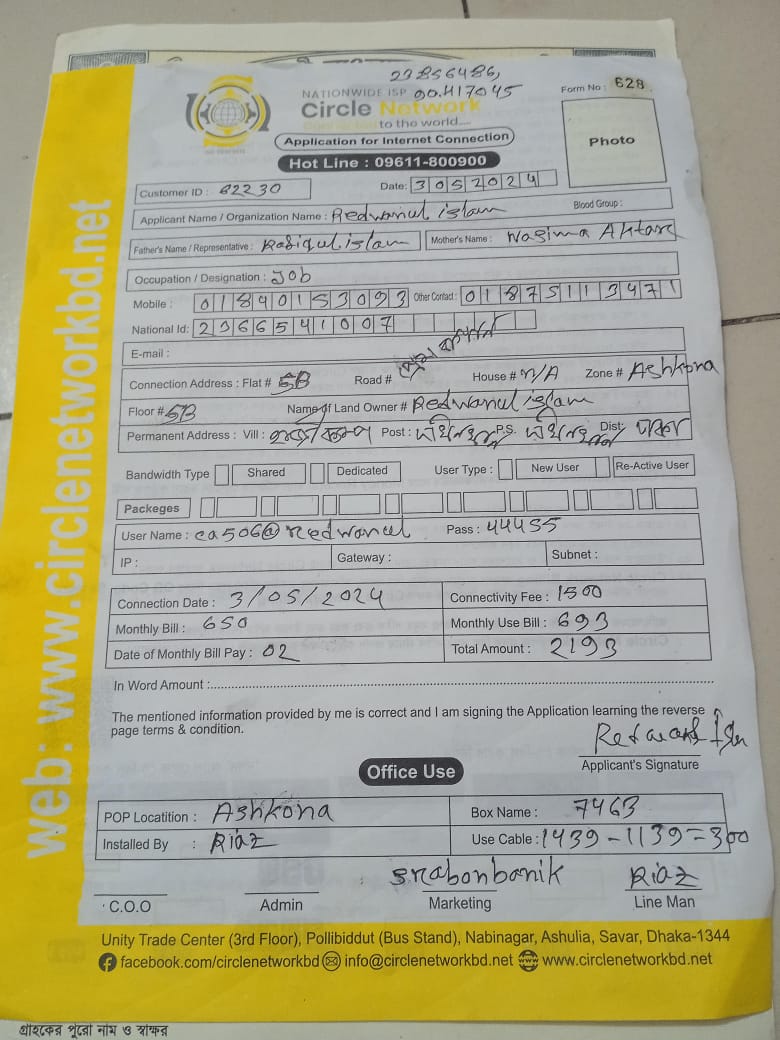 23856486,
NATIONWIDE ISP 90.417045
Form No : 628
Circle Network
Connected to the world....
Photo
Application for Internet Connection
Hot Line : 09611-800900
Customer ID : 62230 Date: 3 0 5 2 0 2 4
Applicant Name / Organization Name : Redwanul islam Blood Group :
Father's Name / Representative : Rafiqul islam Mother's Name : Nasima Aktar
Occupation / Designation : Job
Mobile : 01840153093 Other Contact : 01875113471
National Id: 2366541007
E-mail :
Connection Address : Flat # 5B Road # House # N/A Zone # Ashkona
Floor # 5B Name of Land Owner # Redwanul islam
Permanent Address : Vill : Post : দক্ষিনখান P.S. দক্ষিনখান Dist: ঢাকা
Bandwidth Type Shared Dedicated User Type : New User Re-Active User
Packeges
User Name : ca506@redwanul Pass : 44435
IP : Gateway : Subnet :
Connection Date : 3/05/2024 Connectivity Fee : 1500
Monthly Bill : 650 Monthly Use Bill : 693
Date of Monthly Bill Pay : 02 Total Amount : 2193
In Word Amount :
The mentioned information provided by me is correct and I am signing the Application learning the reverse
page terms & condition.
Applicant's Signature
Office Use
POP Locatition : Ashkona Box Name : 7463
Installed By : Riaz Use Cable : 1439-1139=300
Srabonbanik Riaz
C.O.O Admin Marketing Line Man
Unity Trade Center (3rd Floor), Pollibiddut (Bus Stand), Nabinagar, Ashulia, Savar, Dhaka-1344
facebook.com/circlenetworkbd info@circlenetworkbd.net www.circlenetworkbd.net
web: www.circlenetworkbd.net
গ্রাহকের পুরো নাম ও স্বাক্ষর